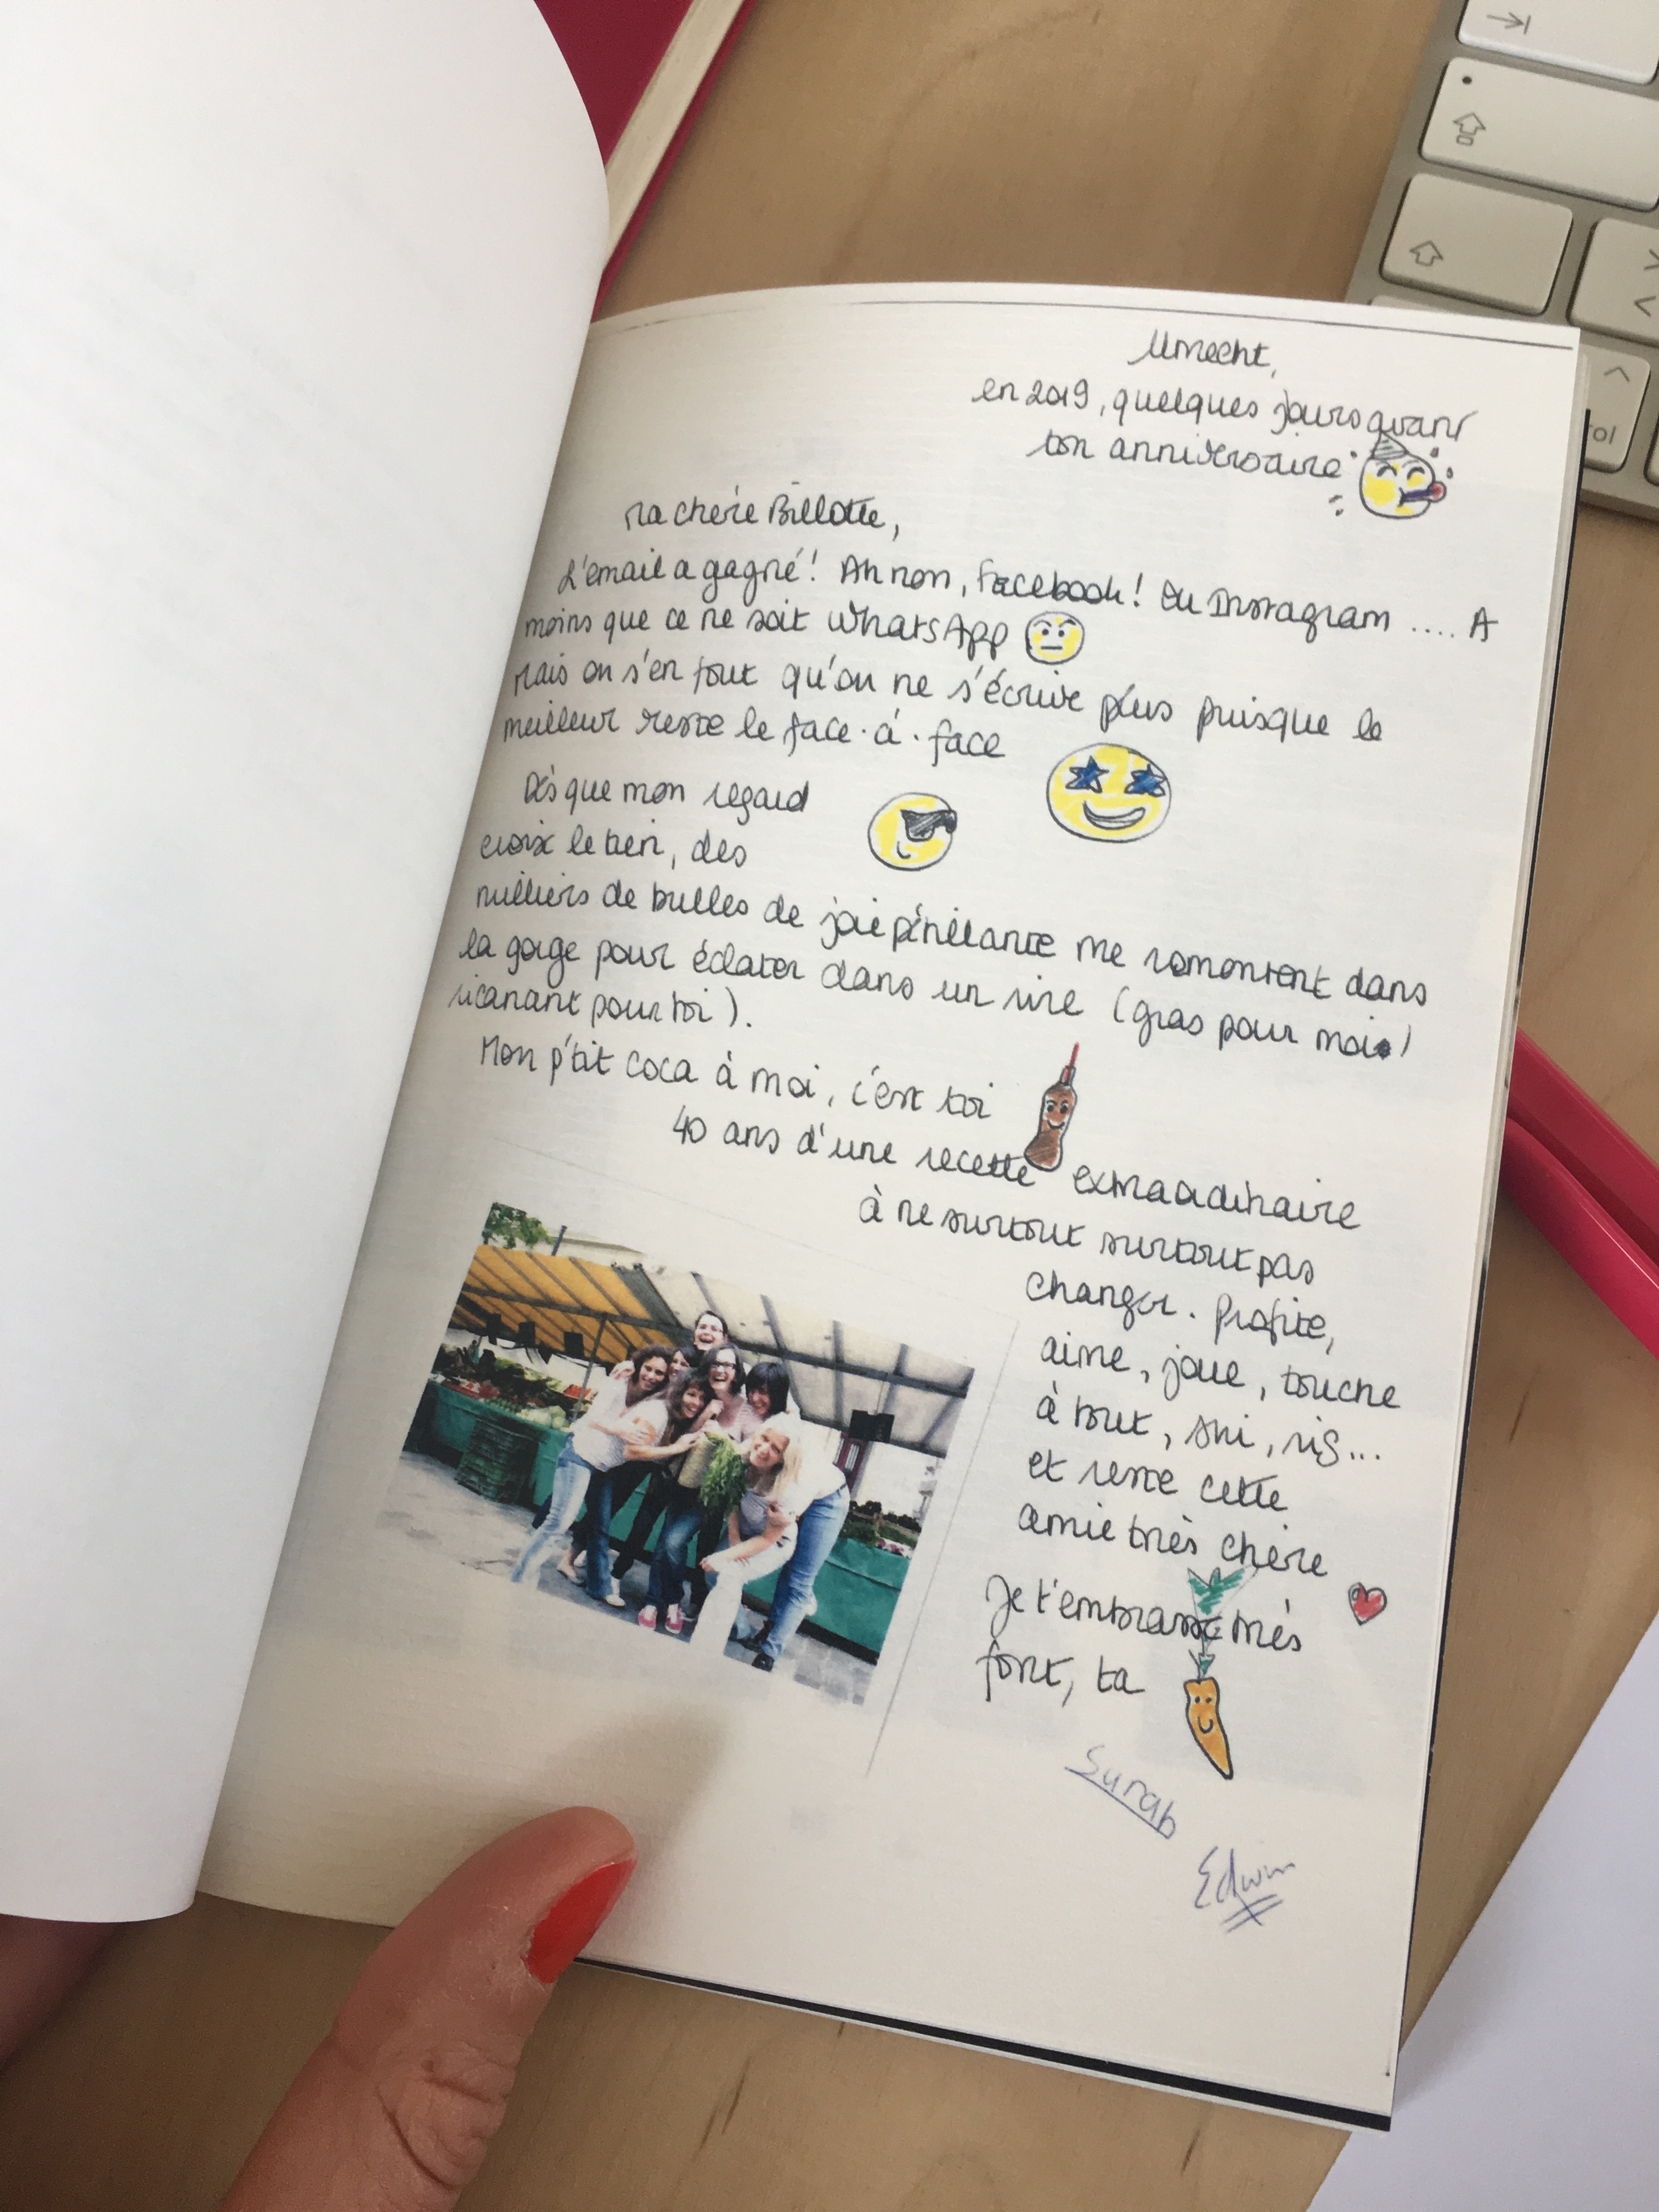 Utrecht,
en 2019, quelques jours avant
ton anniversaire
Ma chère Billotte,
L'email a gagné! Ah non, Facebook! Ou Instagram .... A
moins que ce ne soit WhatsApp
Mais on s'en fout qu'on ne s'écrive plus puisque le
meilleur reste le face-à-face
Dès que mon regard
croix le tien, des
milliers de bulles de joie pétillante me remontent dans
la gorge pour éclater dans un rire (gras pour moi)
ricanant pour toi).
Mon p'tit coca à moi, c'est toi
40 ans d'une recette extraordinaire
à ne surtout surtout pas
changer. Profite,
aime, joue, touche
à tout, ski, ris...
et reste cette
amie très chère
Je t'embrasse très
fort, ta
Surah
Edwin
ol